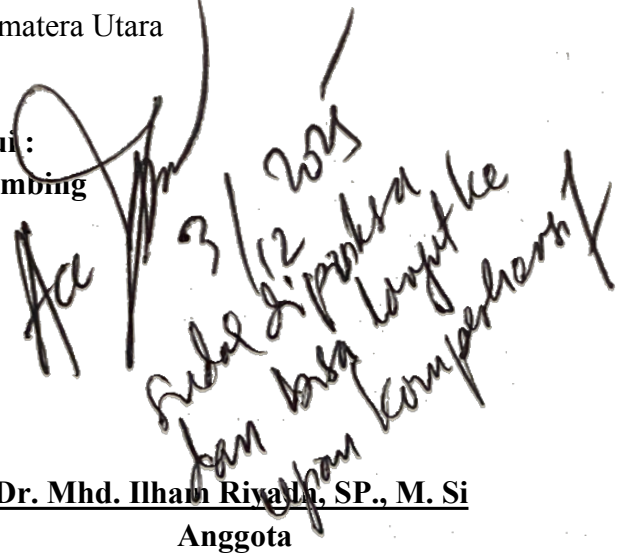 matera Utara
ui :
mbing
Acc
3/12 2025
sudah diperiksa
dan bisa lanjut ke
ujian komprehensif
Dr. Mhd. Ilham Riyadh, SP., M. Si
Anggota